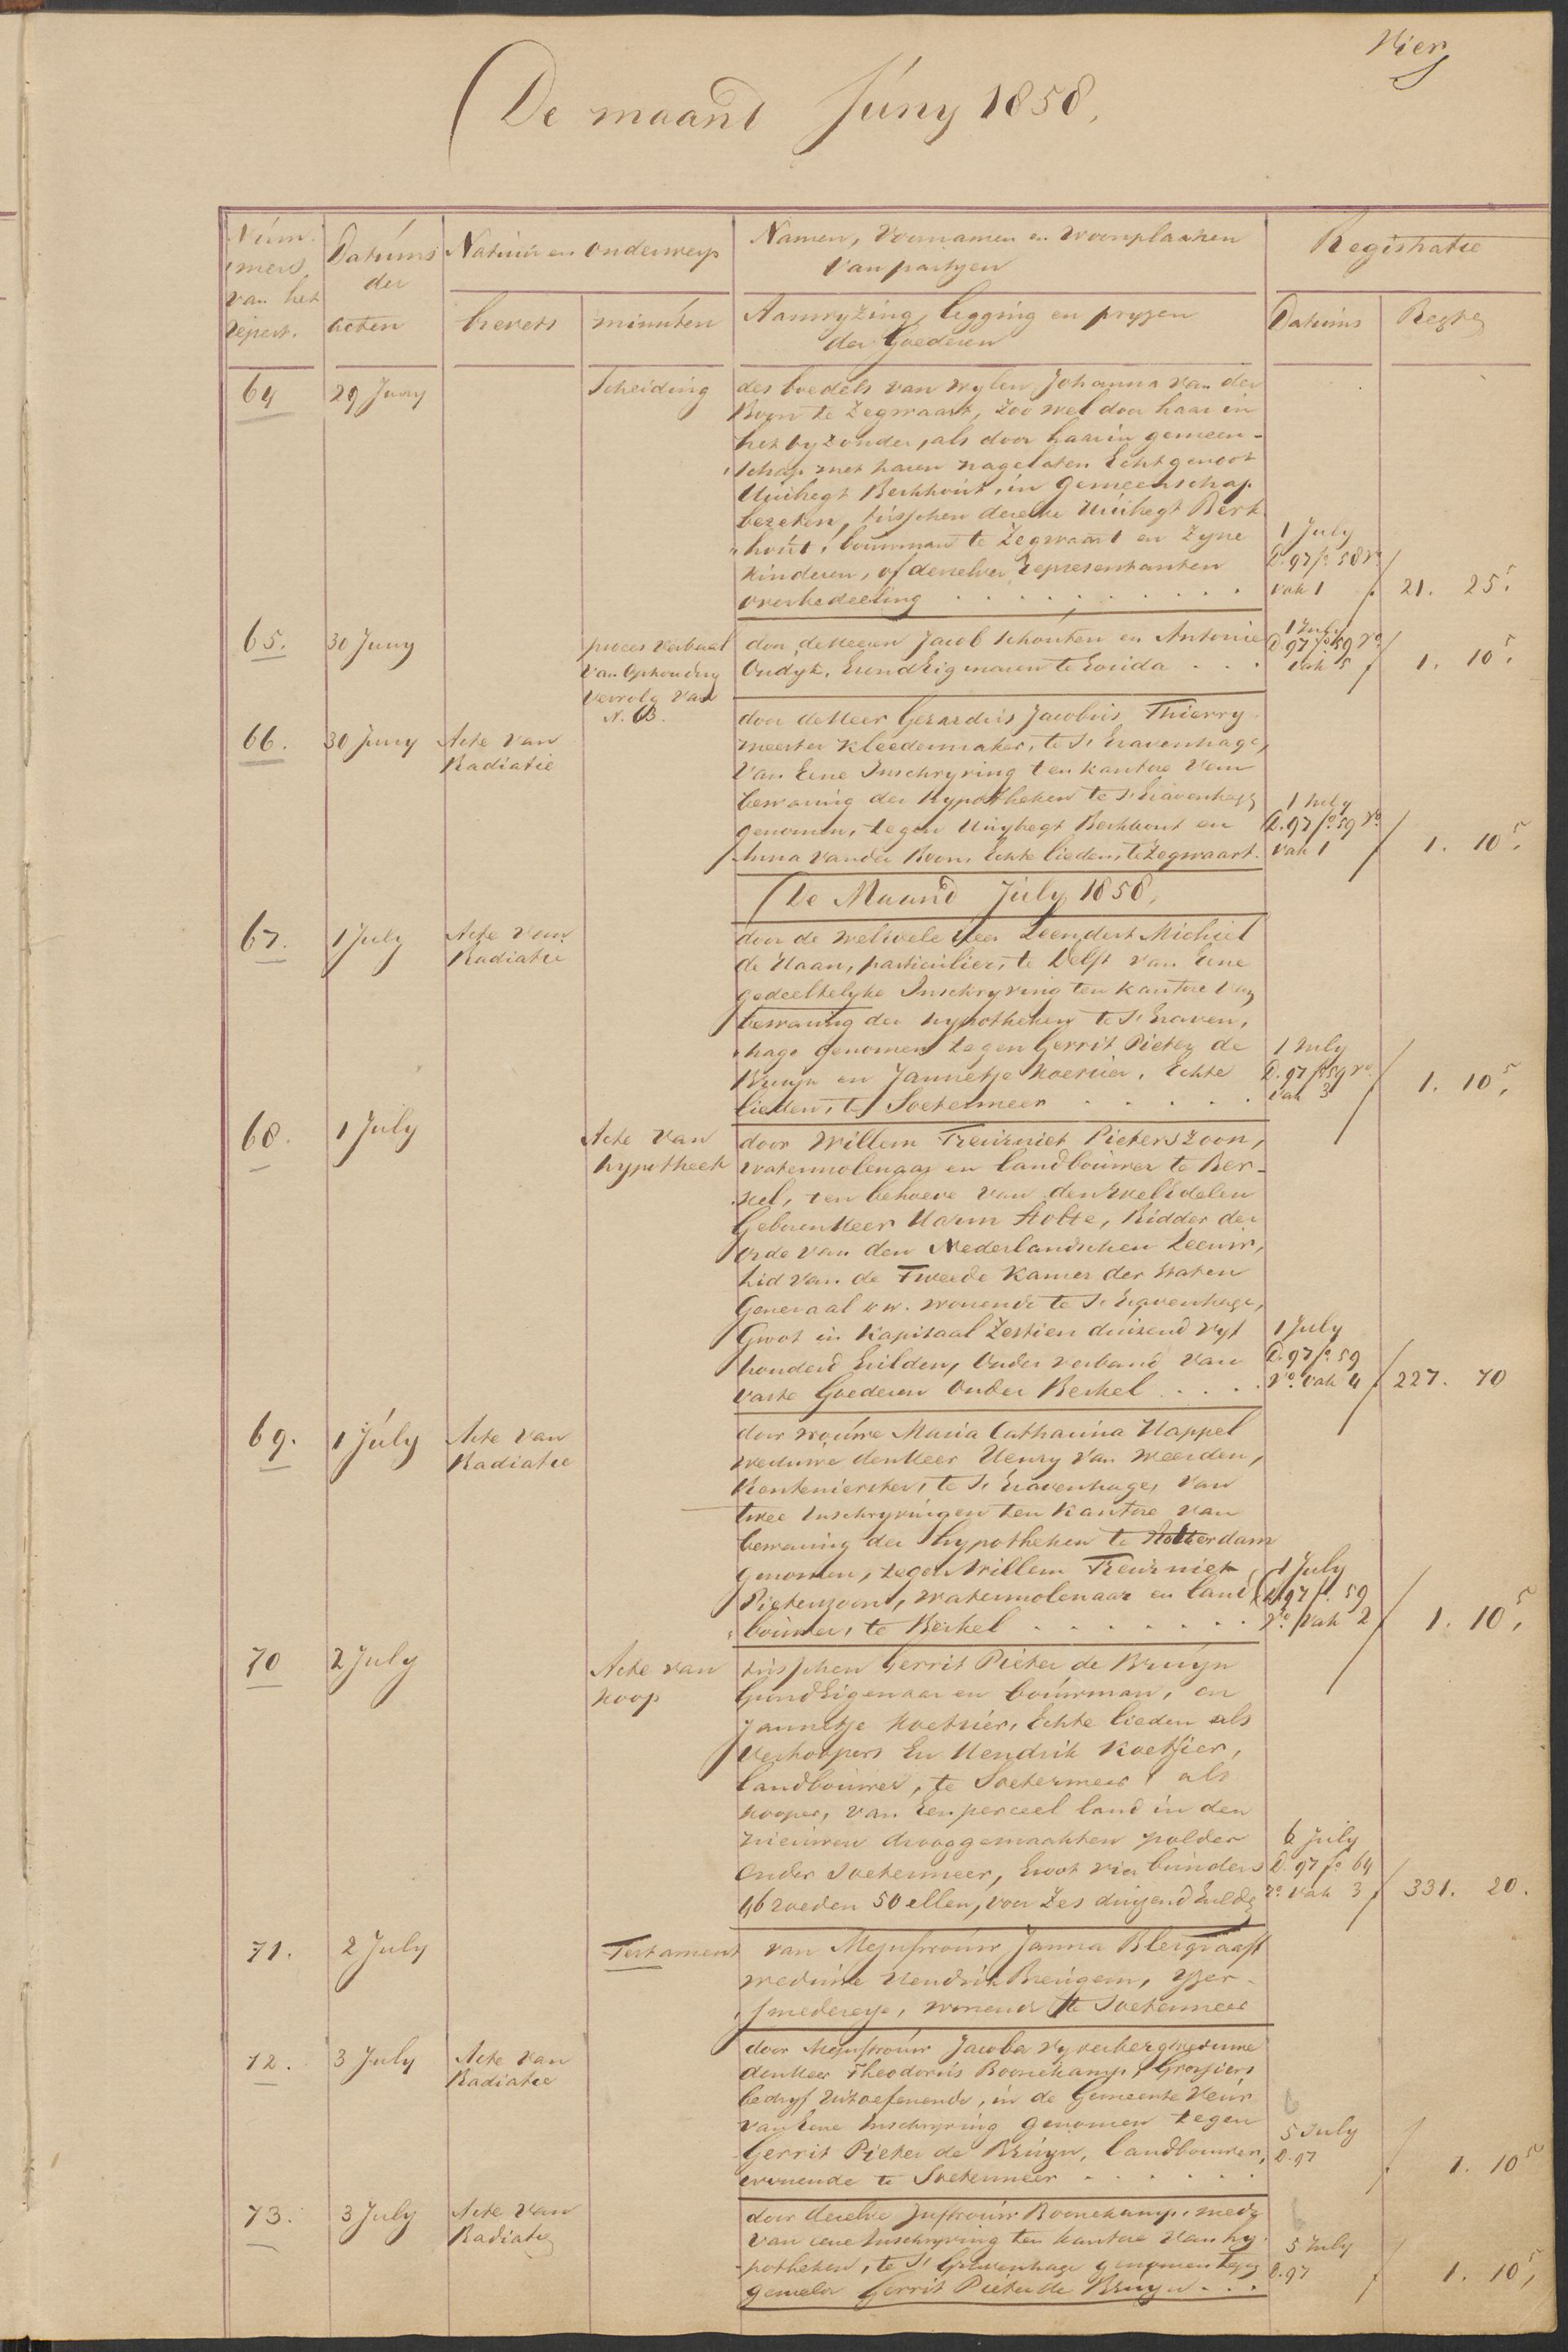 Vier
De maand Júny 1858.
Núm¬
mers
van het
repert.
Datúms
der
acten
Natúúr en onderwerp
brevets
minúten
Namen, Voornamen en Woonplaatsen
van partyen
Aanwyzing, legging en pryzen
der Goederen
Registratie
Datúms
Regten
64
29 Juny
Scheiding
des boedels van wylen Johanna van der
Boon te Zegwaart, zoo wel door haar in
het byzonder, als door haar in gemeen-
schap met haren nagelaten Echtgenoot
Huibregt Berkhout, in gemeenschap
bezeten, tússchen dezelve Huibregt Berk
hoút, bouwman te Zegwaart en zyne
kinderen, of derzelver representanten
overbedeeling
1 July
D. 97 fo. 58 vo
vak 1
21. 25 5
65.
30 Juny
proces verbaal
van Ophouding
vervolg van
N. 63.
door de Heeren Jacob Schouten en Antonie
Oudyk, Grond Eigenaren te Gouda
1 July
D. 97 fo. 59 ro
vak 5
1. 10 5
66.
30 Juny
Acte van
Radiatie
door de Heer Gerardús Jacobús Thierry
meester kleedermaker, te 's Gravenhage,
van Eene Inschryving ten kantore van
bewaring der Hypotheken te 's Gravenhage
genomen, tegen Huybregt Berkhout en
Anna van der Boon, Echte lieden, te Zegwaart.
1 July
D. 97 fo. 59 ro
vak 1
1. 10 5
De Maand July 1858.
67.
1 July
Acte van
Radiatie
door de welEdele Heer Leendert Michiel
de Haan, particúlier, te Delft van Eene
gedeeltelyke Inschryving ten kantore van
bewaring der hypotheken te 's Graven,
hage genomen tegen Gerrit Pieter de
Bruyn en Jannetje Koetsier, Echte
lieden, te Soetermeer
1 July
D. 97 fo 59 ro
vak 3
1. 10 5
68.
1 July
Acte van
hypotheek
door Willem Treúrniet Pieterszoon,
watermolenaar en landboúwer te Ber-
kel, ten behoeve van den WelEdelen
Geboren Heer Harm Stolte, Ridder der
Orde van den Nederlandschen Leeuw,
Lid van de Tweede Kamer der Staten
Generaal wonende te 's Gravenhage,
Groot in Kapitaal Zestien duizend vyf
honderd Gúlden, Onder verband van
vaste Goederen Onder Berkel
1 July
D. 97 fo. 59
vo. vak 4
227. 70
69.
1 Júly
Acte van
Radiatie
door Vroúwe Maria Catharina Happel
weduwe den Heer Henry van Weerden,
Rentenierster, te 's Gravenhage, van
twee Inschryvingen ten Kantore van
bewaring der hypotheken te Rotterdam
genomen, tegen Willem Treúrniet,
Pieterszoon, watermolenaar en land
boúwer, te Berkel
1 July
D. 97 fo. 59
vo. vak 2
1. 10 5
70
2 July
Acte van
koop
tússchen Gerrit Pieter de Bruyn
Grond Eigenaar en boúwman, en
Jannetje Koetsier, Echte lieden als
Verkoopers En Hendrik Koetsier,
landboúwer, te Soetermeer, als
kooper, van Een perceel land in den
nieúwen drooggemaakten polder
onder Soetermeer, Groot vier búnders
46 roeden 50 ellen, voor Zes duizend Gulden
6 July
D. 97 fo 64
ro vak 3
331. 20.
71.
2 July
Testament
van Mejufvroúw Janna Blesgraaft
weduwe Hendrik Breúgem, Yzer-
smederesse, wonende te Soetermeer
72.
3 July
Acte van
Radiatie
door Mejufvroúw Jacoba Vyverberg weduwe
den Heer Theodorús Boonekamp, Grossiers
bedryf uitoefenende, in de Gemeente Veúr
van Eene Inschryving genomen tegen
Gerrit Pieter de Brúyn, landbouwer,
wonende te Soetermeer
6
5 July
D. 97
1. 10 5
73.
3 July
Acte van
Radiatie
door dezelve Jufvroúw Boonekamp, mede
van eene Inschryving ten kantore van hy-
potheken, te 's Gravenhage genomen tegen
gemelde Gerrit Pieter de Bruyn
6
5 July
D. 97
1. 10 5